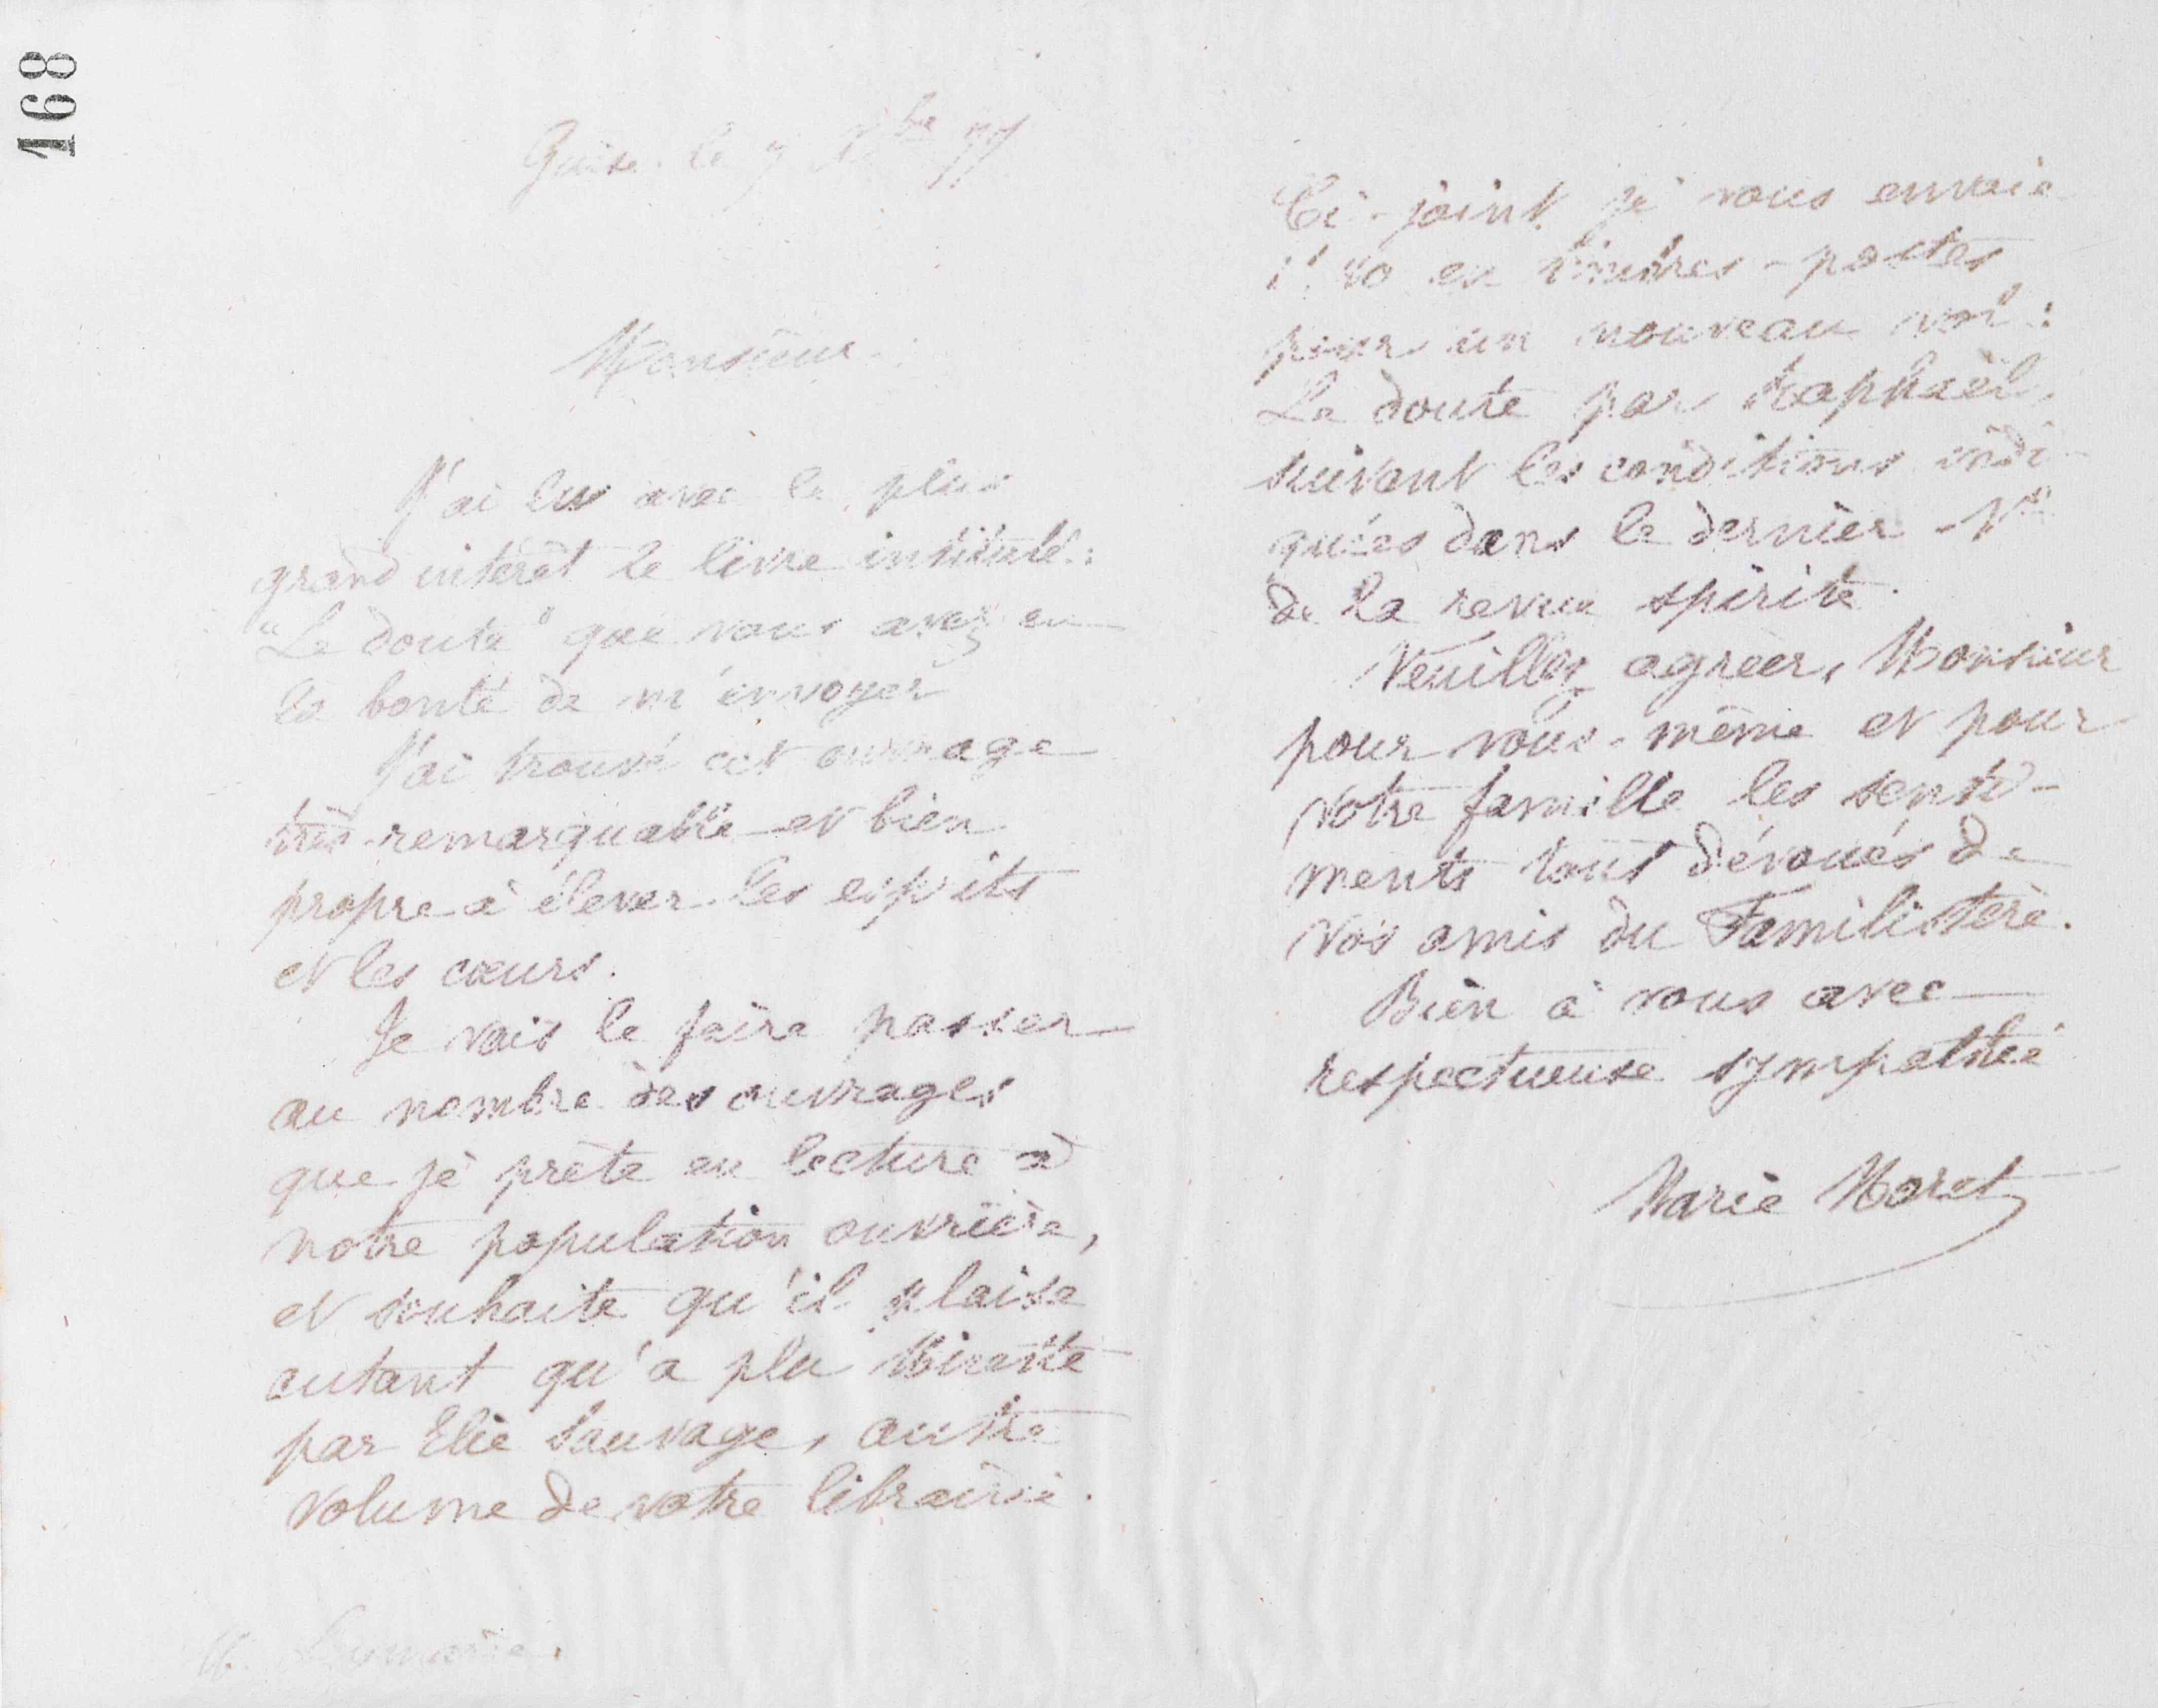 168
Guise le 7 Xbre 77
Monsieur :
J'ai lu avec le plus
grand intérêt le livre intitulé :
"Le doute" que vous avez eu
la bonté de m'envoyer
J'ai trouvé cet ouvrage
très remarquable et bien
propre à élever les esprits
et les cœurs.
Je vais le faire passer
au nombre des ouvrages
que je prête en lecture à
notre population ouvrière,
et souhaite qu'il plaise
autant qu'a plu Mirette
par Elie Sauvage, autre
volume de votre librairie.
M. Leymarie.
Ci-joint je vous envoie
en timbres-postes
pour un nouveau vol :
Le doute par Raphaël,
suivant les conditions indi-
quées dans le dernier No
de la revue spirite.
Veuillez agréer, Monsieur
pour vous-même et pour
votre famille les senti-
ments tout dévoués de
vos amis du Familistère.
Bien à vous avec
respectueuse sympathie
Marie Moret